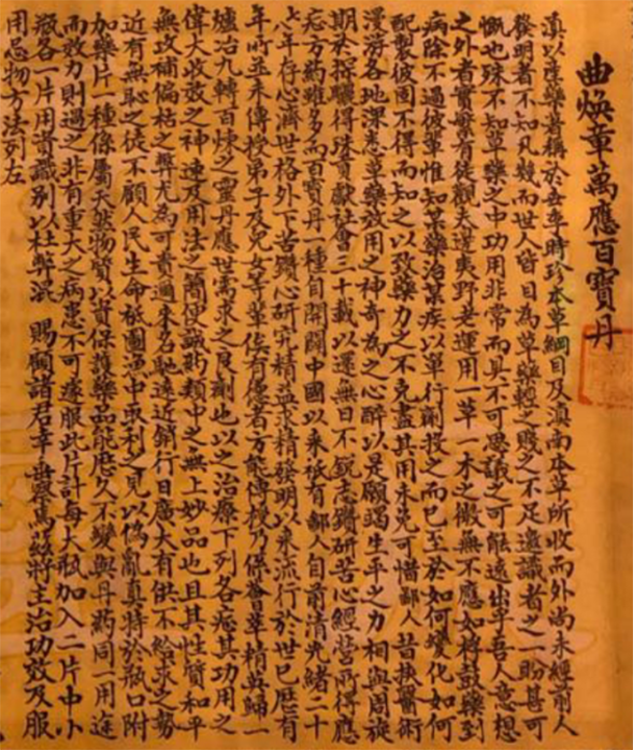 曲煥章萬應百寶丹
滇以產藥著稱於吾李時珍本草綱目及滇南本草所收而外尚未經前人
發明者不知凡幾而世人皆目為草藥輕之賤之不足邀識者之一盼甚可
慨也殊不知草藥之中功用非常而具不可思議之可能遠出乎吾人意想
之外者實繁有徒觀夫逆夷野老運用一草一木之微無不應如桴鼓藥到
病除不過彼輩惟知某藥治某疾以單行劑投之而已至於如何變化如何
配製彼固不得而知之以致藥力之不克盡其用未免可惜鄙人昔挾醫術
漫游各地深悉草藥效用之神奇為之心醉以是願竭生平之力相與周旋
期於探驪得珠貢獻社會三十載以還無日不銳志鑽研苦心經營所得應
症方藥雖多而百寶丹一種自開闢中國以來祇有鄙人自前清光緒二十
八年存心濟世格外下苦鑽心研究精益求精發明以來流行於世已歷有
年所並未傳授弟子及兒女等輩俟有德者方能傳授乃係薈萃精英歸一
爐冶九轉百煉之靈丹應世需求之良劑也以之治療下列各症其功用之
偉大收效之神速及用法之簡便誠藥類中之無上妙品也且其性質和平
無攻補偏枯之弊尤為可貴邇來名馳遠近銷行日廣大有供不給求之勢
近有無恥之徒不顧人民生命秖圖漁中取利之見以偽亂真特於瓶口附
加藥片一種係屬天然物質以資保護藥品能歷久不變與丹藥同一用途
而效力則過之非有重大之病患不可遽服此片計每大瓶加入二片中小
瓶各一片用資識別以杜弊混 賜顧諸君幸垂察焉茲將主治功效及服
用忌物方法列左